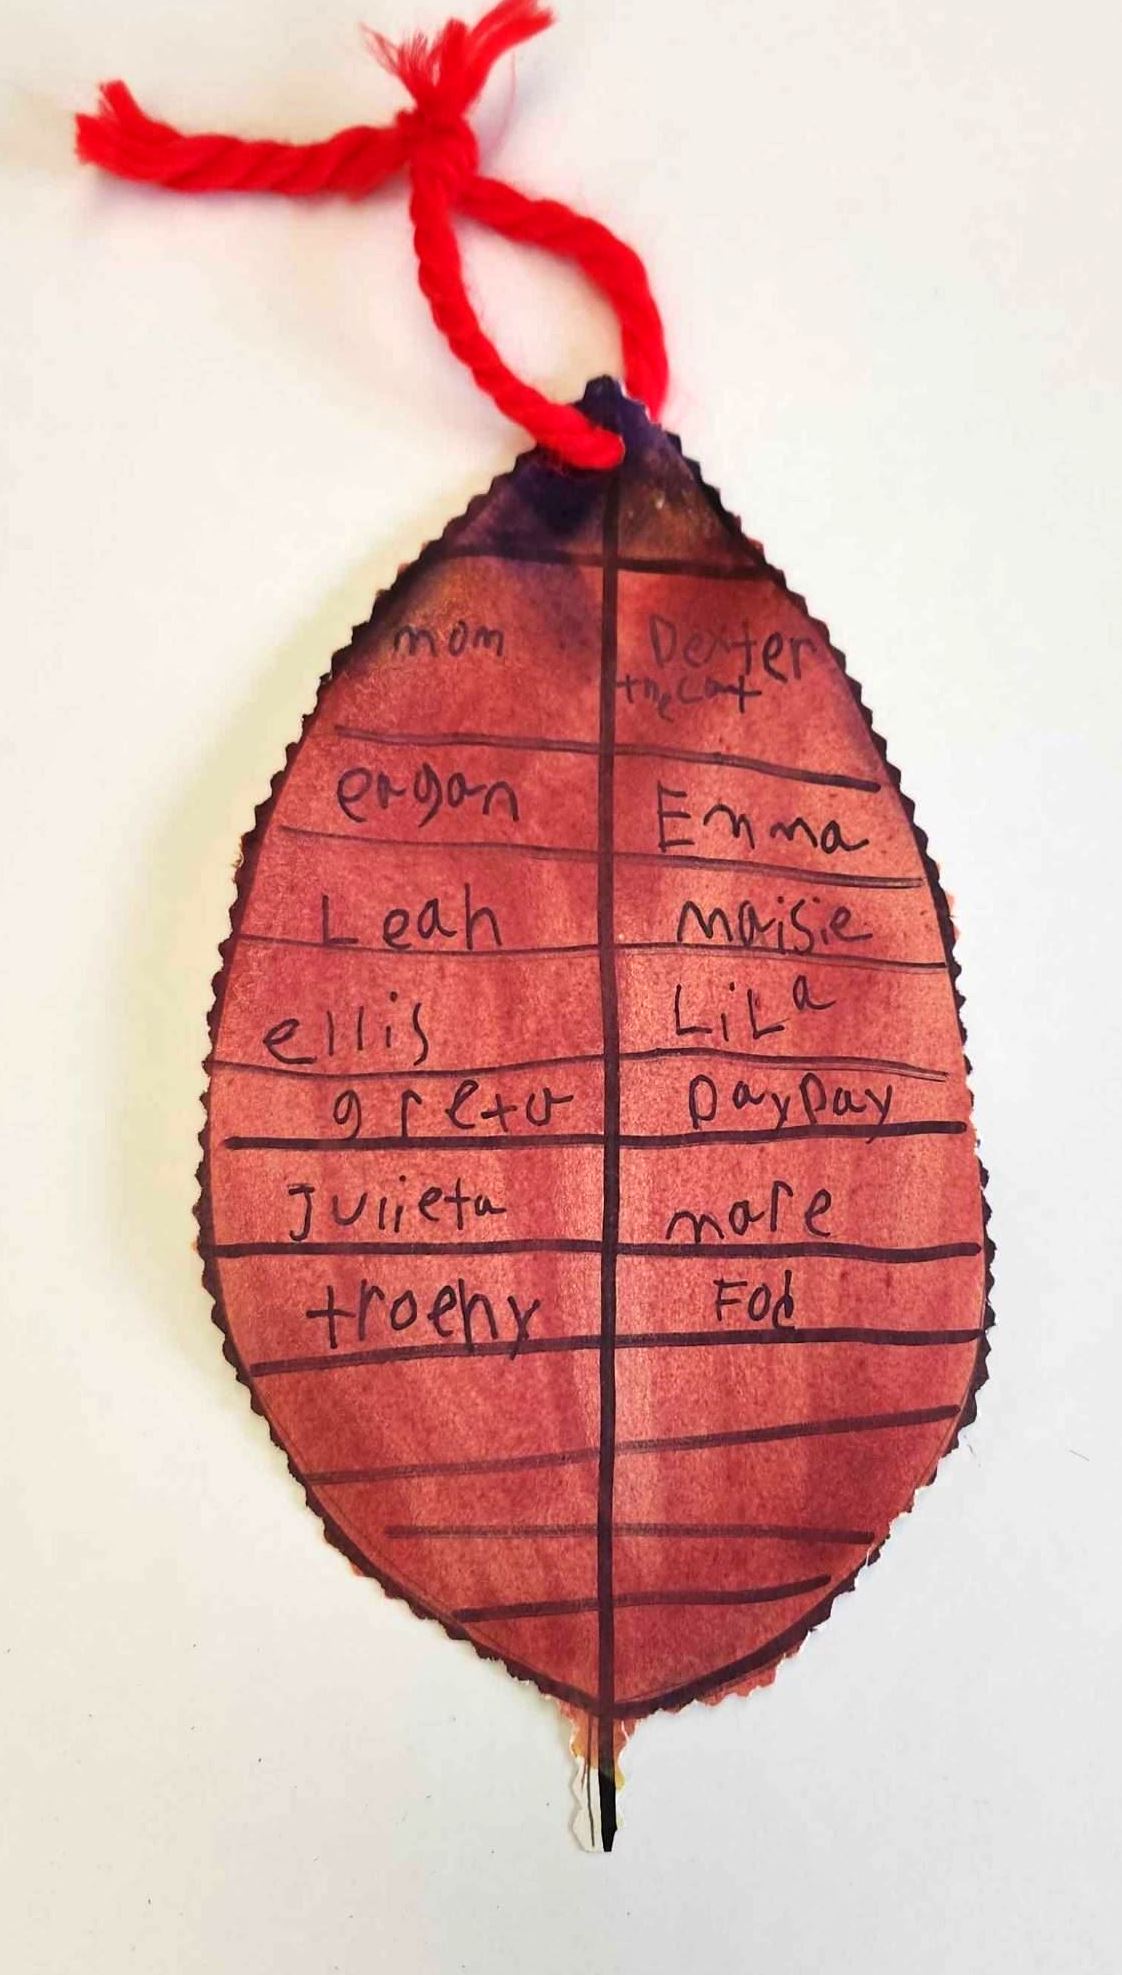 mom
Dexter
the cat
eagan
Emma
Leah
maisie
ellis
LiLa
greta
PayDay
Julieta
mare
troehy
Fod